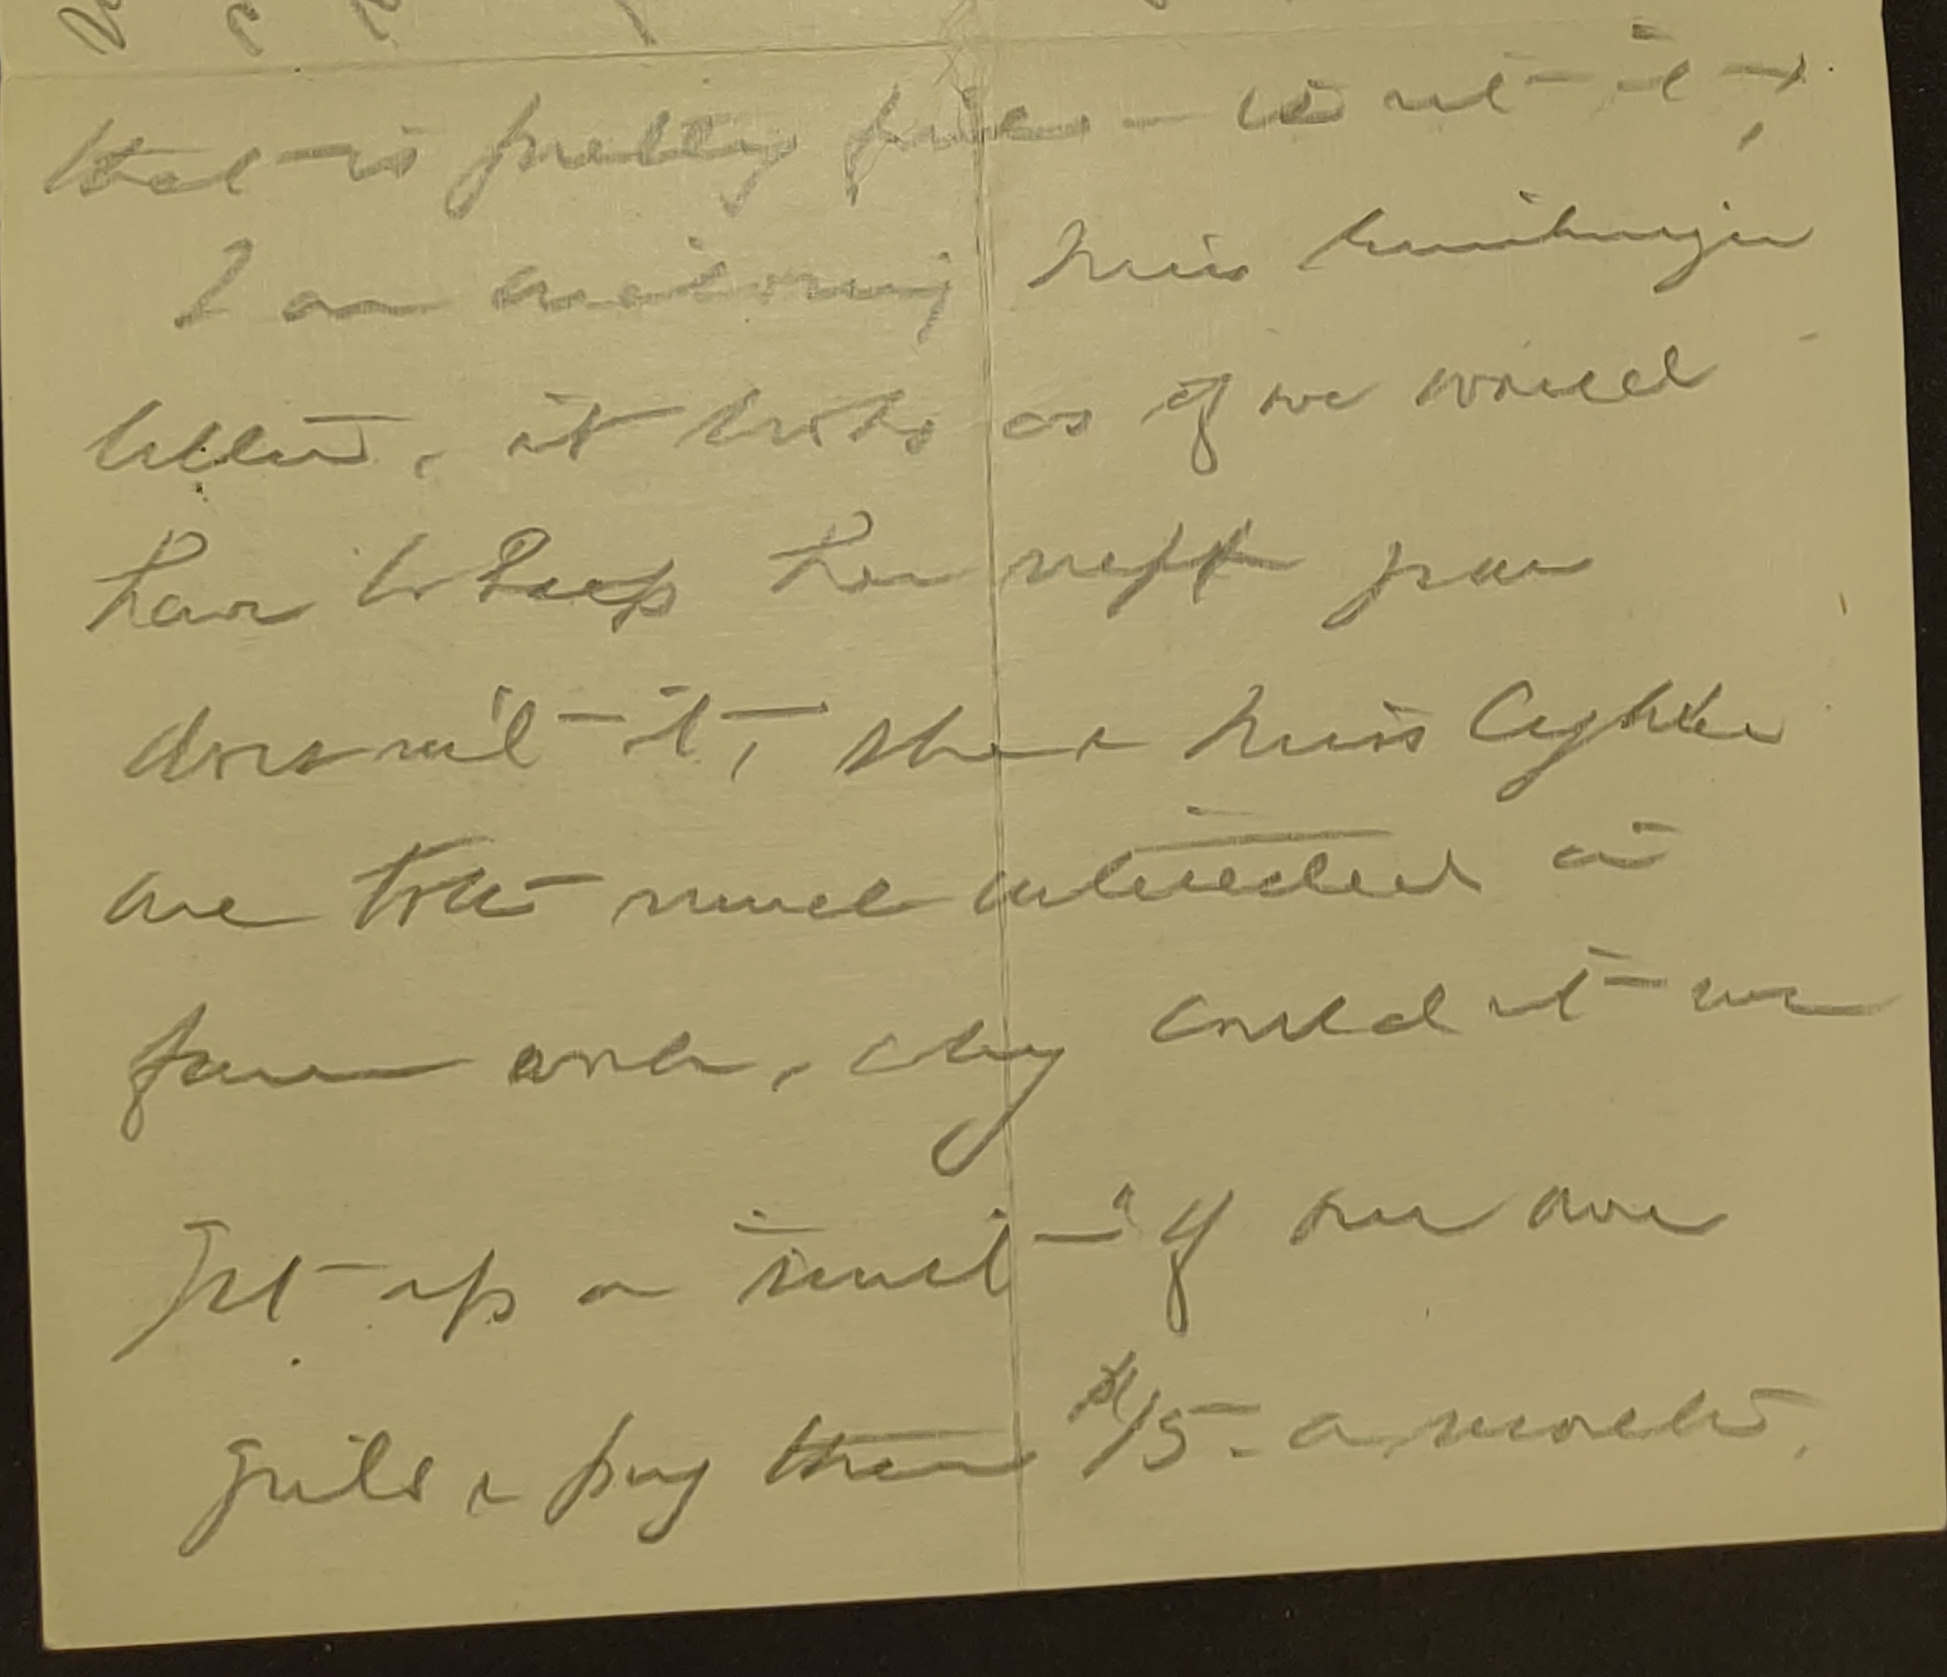 that is pretty fine — is n't it,
I am enclosing Miss
letter, it looks as if we would
have to keep her next year
doesn't it, she & Miss
are both much interested in
farm work, why could n't we
get up a unit if we are
girls & pay them $15 - a month.